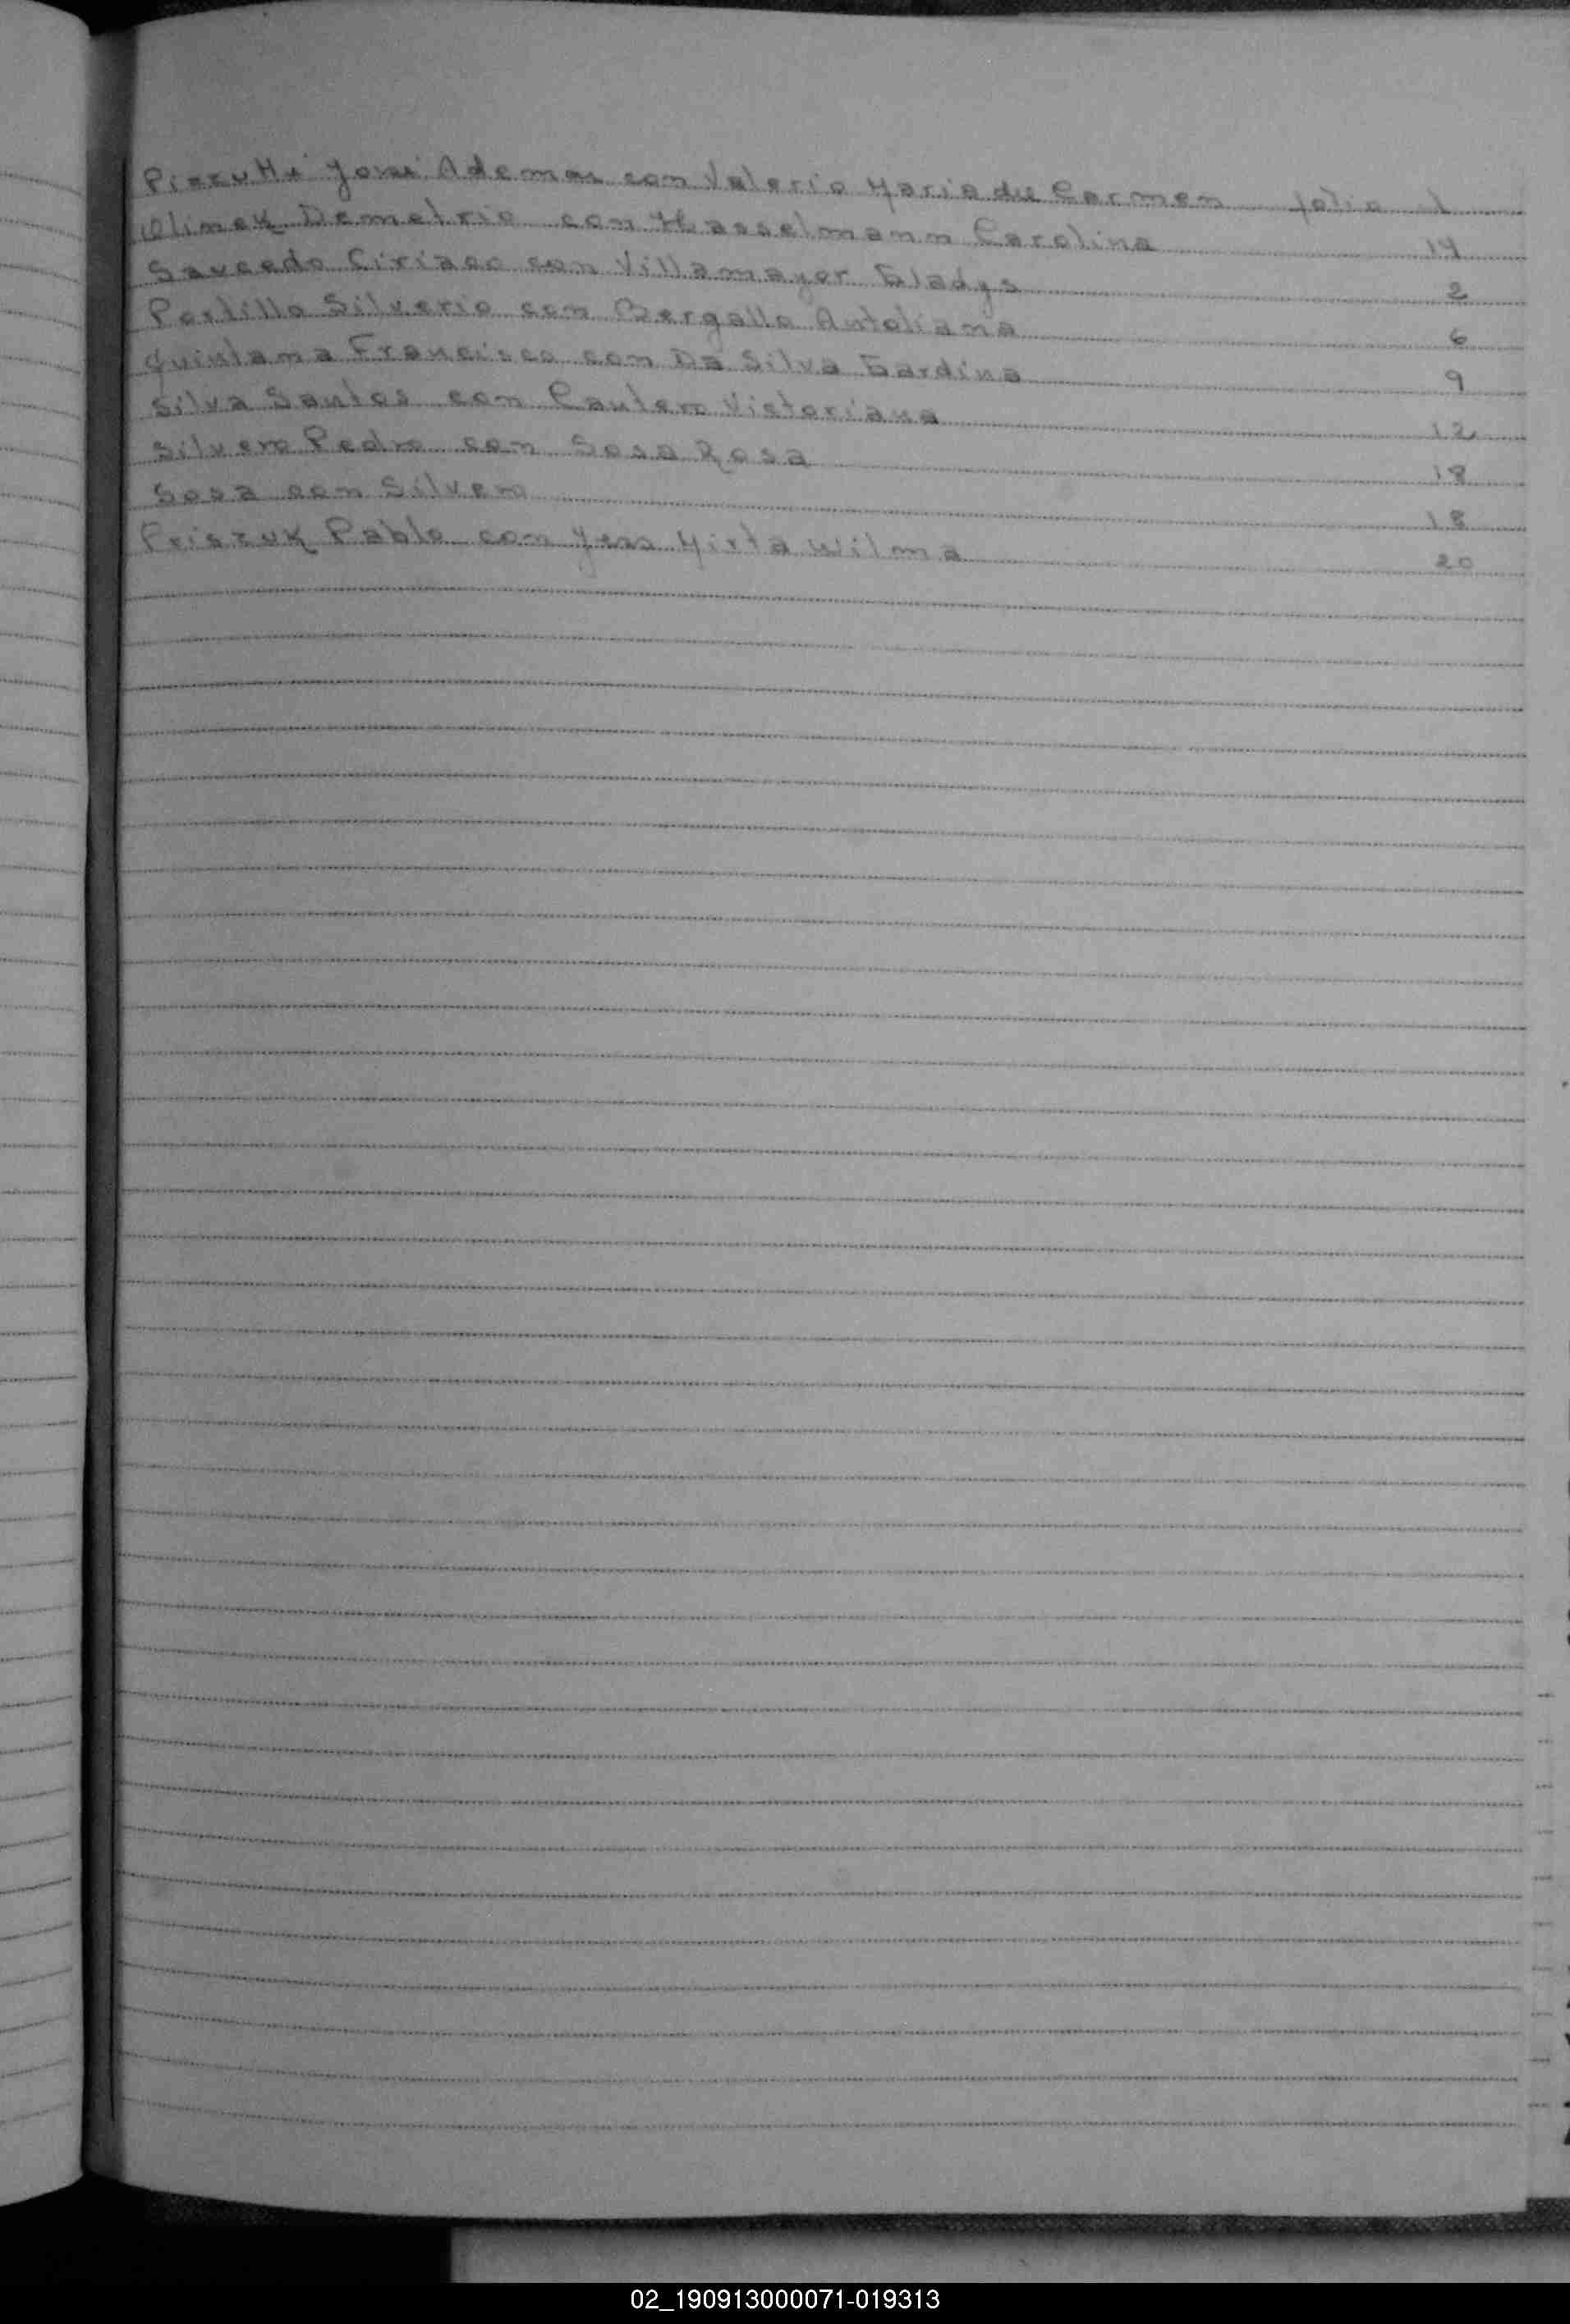 Piazutti José Ademar con Valerio Maria del Carmen folio 1
Olinek Demetrio con Hasselmann Carolina 14
Saucedo Ciriaco con Villamayor Gladys 2
Portillo Silverio con Bergallo Antoliana 6
Quintana Francisco con Da Silva Gardina 9
Silva Santos con Cautero Victoriana 12
Silvero Pedro con Sosa Rosa 18
Sosa con Silvero 18
Priszuk Pablo con Mirta Wilma 20
02_190913000071-019313